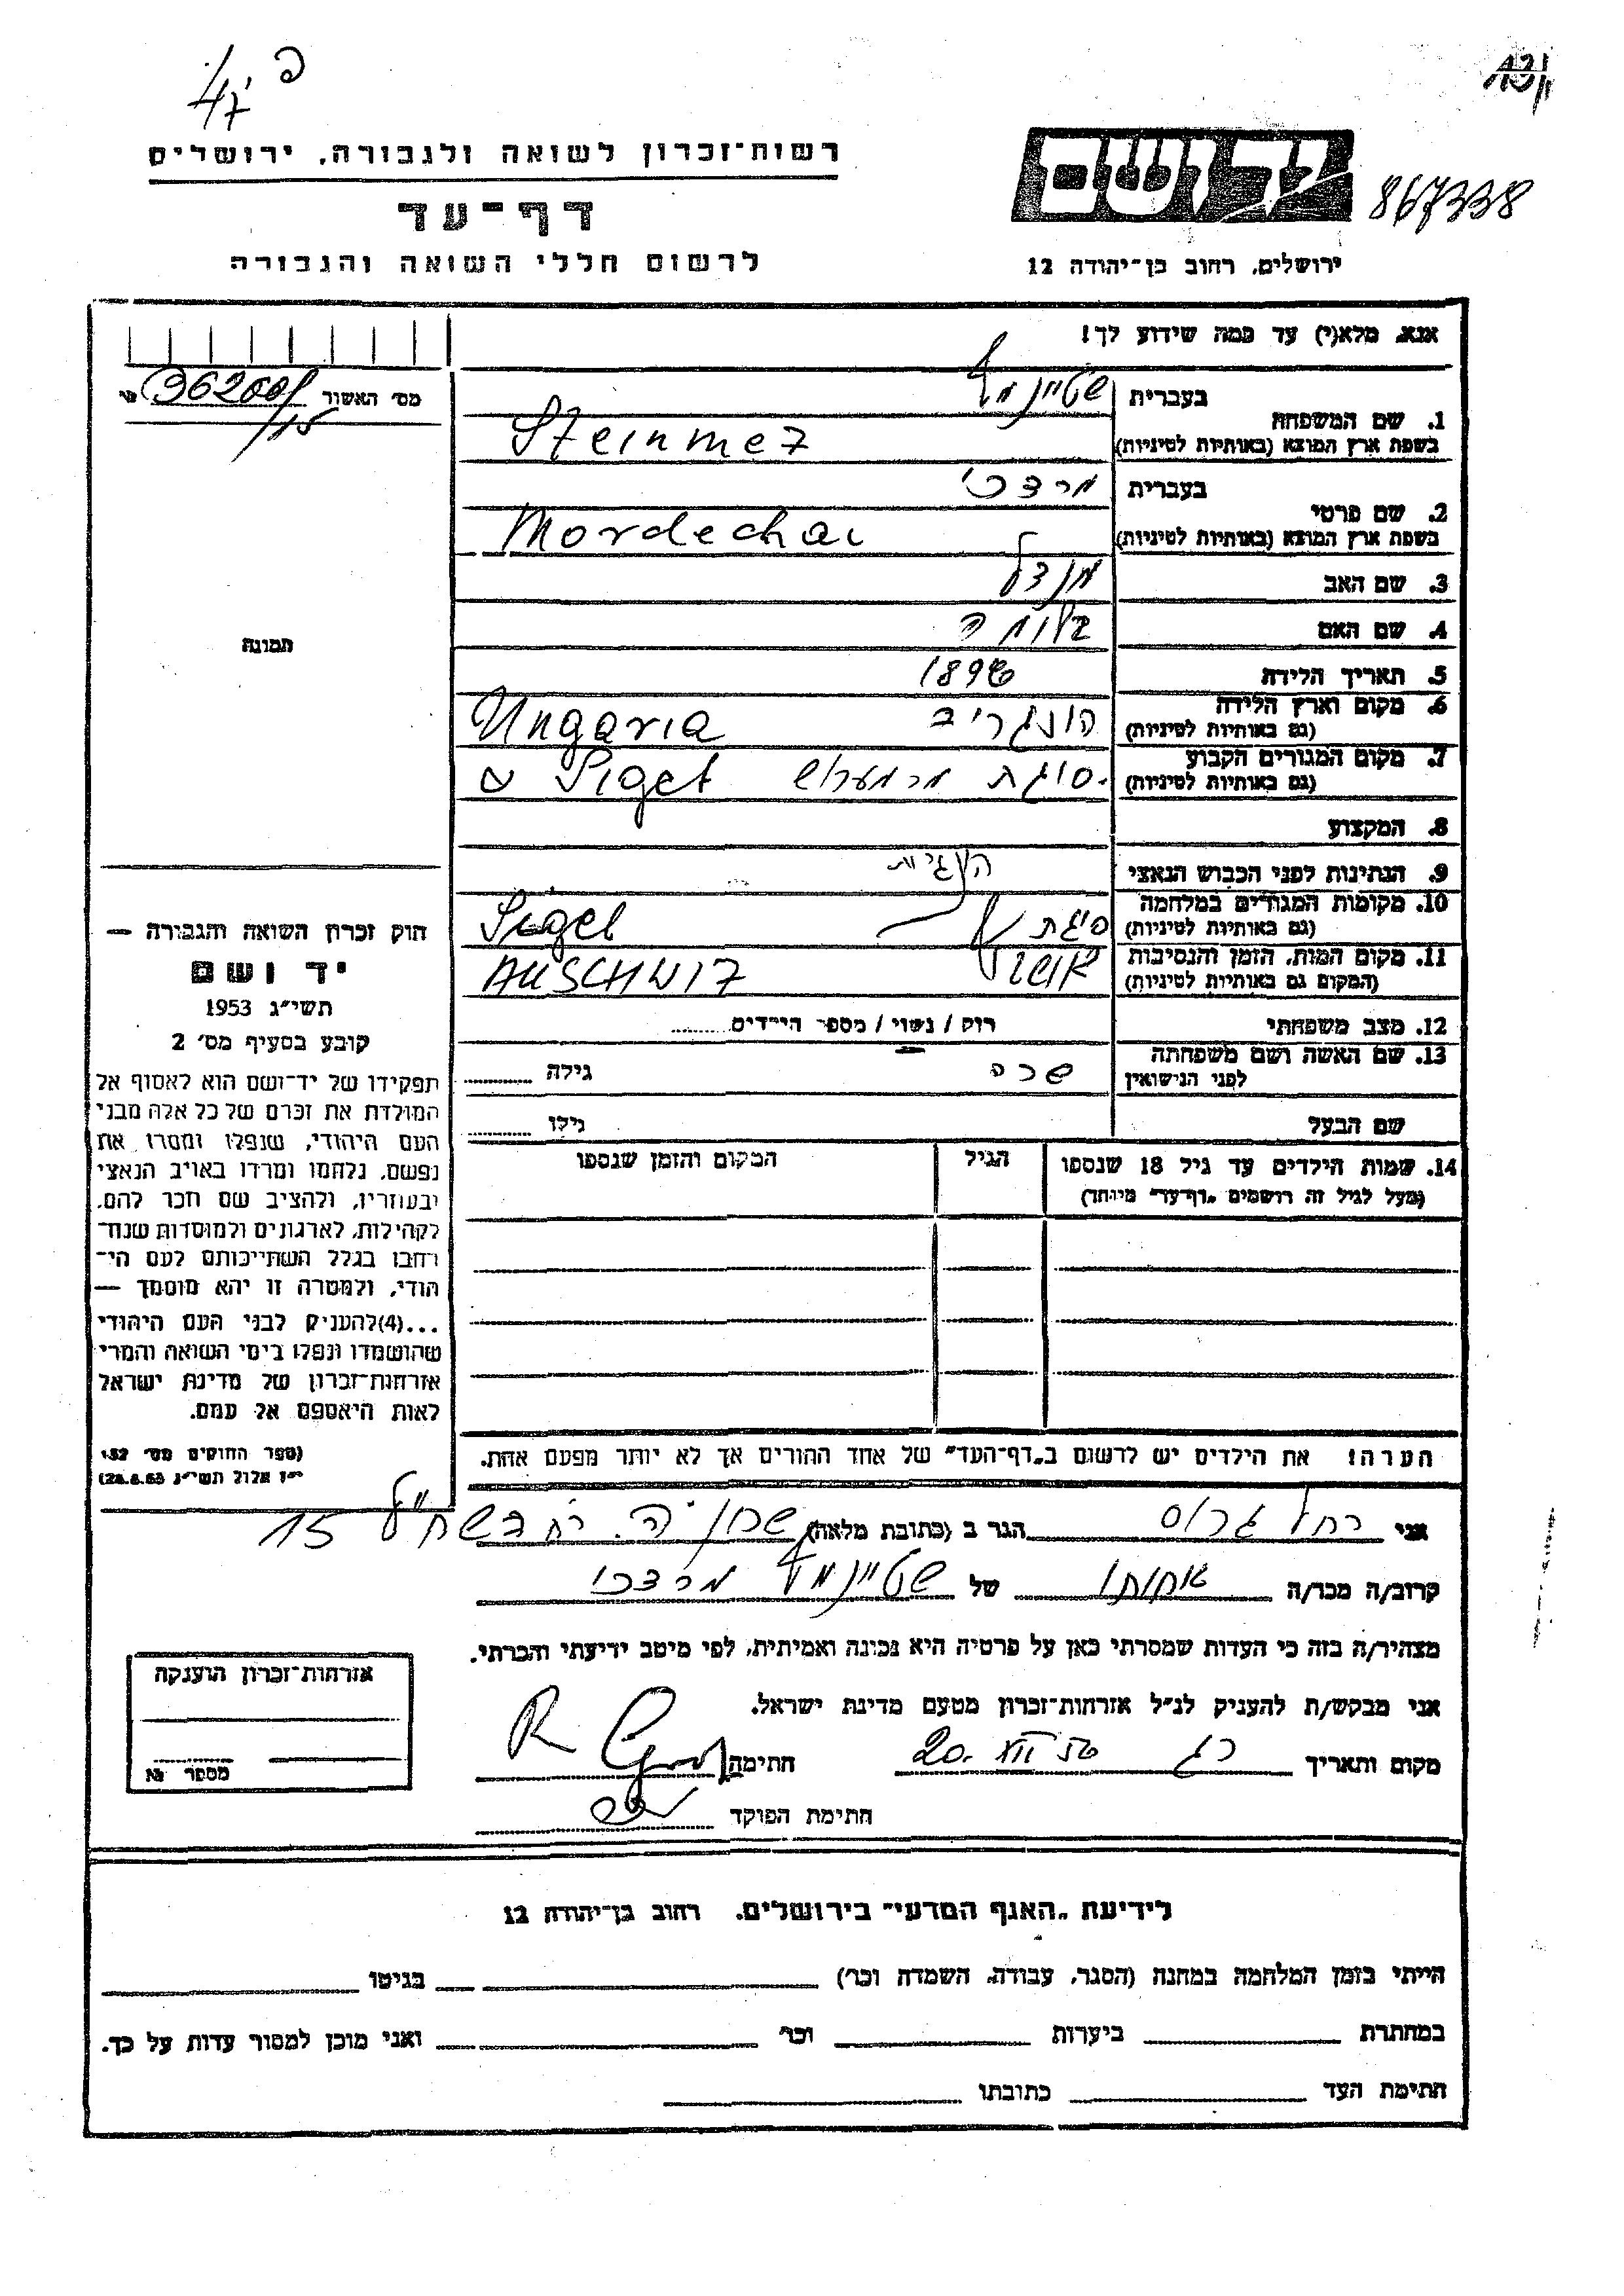 47
רשות־זכרון לשואה ולגבורה, ירושלים
דף־עד
לרשום חללי השואה והגבורה
יד ושם
867338
ירושלים, רחוב בן־יהודה 12
אנא, מלא(י) עד כמה שידוע לך!
מס׳ האשור
15
1. שם המשפחה
בעברית שטיינמץ
בשפת ארץ המוצא (באותיות לטיניות) Steinmez
2. שם פרטי
בעברית מרדכי
בשפת ארץ המוצא (באותיות לטיניות) Mordechai
3. שם האב מנדל
4. שם האם בלומה
5. תאריך הלידה
6. מקום וארץ הלידה
(גם באותיות לטיניות) Ungaria
7. מקום המגורים הקבוע
(גם באותיות לטיניות) סיגט מרמרוש Siget
8. המקצוע
9. הנתינות לפני הכבוש הנאצי
10. מקומות המגורים במלחמה
(גם באותיות לטיניות) סיגת Siget
11. מקום המות, הזמן והנסיבות
(המקום גם באותיות לטיניות) AUSCHWIZ
12. מצב משפחתי רוק / נשוי / מספר הילדים
13. שם האשה ושם משפחתה
לפני הנישואין שרה גילה
שם הבעל גילו
14. שמות הילדים עד גיל 18 שנספו הגיל המקום והזמן שנספו
(מעל לגיל זה רושמים „דף־עד״ מיוחד)
הערה! את הילדים יש לרשום ב„דף־העד״ של אחד ההורים אך לא יותר מפעם אחת.
תמונה
חוק זכרון השואה והגבורה —
יד ושם
תשי״ג 1953
קובע בסעיף מס׳ 2
תפקידו של יד־ושם הוא לאסוף אל
המולדת את זכרם של כל אלה מבני
העם היהודי, שנפלו ומסרו את
נפשם, נלחמו ומרדו באויב הנאצי
ובעוזריו, ולהציב שם וזכר להם,
לקהילות, לארגונים ולמוסדות שנח־
רחבו בגלל השתייכותם לעם הי־
הודי, ולמטרה זו יהא מוסמך —
...(4)להעניק לבני העם היהודי
שהושמדו ונפלו בימי השואה והמרי
אזרחות־זכרון של מדינת ישראל
לאות היאספם אל עמם.
(ספר החוקים מס׳ 132
י״ז אלול תשי״ג 28.8.53)
אני רחל גרוס הגר ב (כתובת מלאה) 15
קרוב/ה מכר/ה אחותו של שטיינמץ מרדכי
מצהיר/ה בזה כי העדות שמסרתי כאן על פרטיה היא נכונה ואמיתית, לפי מיטב ידיעתי והכרתי.
אני מבקש/ת להעניק לנ״ל אזרחות־זכרון מטעם מדינת ישראל.
מקום ותאריך חתימה
חתימת הפוקד
אזרחות־זכרון הוענקה
מספר №
לידיעת „האגף המדעי״ בירושלים, רחוב בן־יהודה 12
הייתי בזמן המלחמה במחנה (הסגר, עבודה, השמדה וכו׳) בגיטו
במחתרת ביערות וכו׳ ואני מוכן למסור עדות על כך.
חתימת העד כתובתו